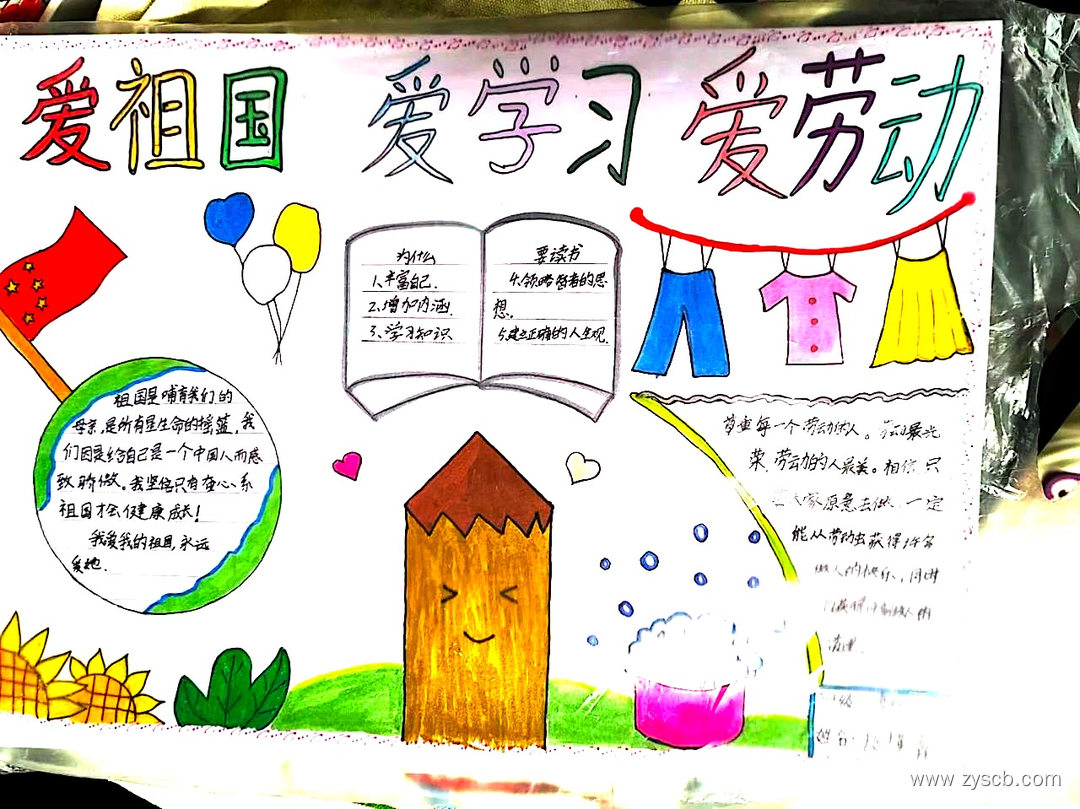 爱祖国 爱学习 爱劳动
为什么
1、丰富自己.
2、增加内涵.
3、学习知识
要读书
4.领略智者的思
想.
5.建立正确的人生观.
祖国是哺育我们的
母亲,是所有是生命的摇篮,我
们因是给自己是一个中国人而感
致骄傲。我坚信只有在心系
祖国才会健康成长!
我爱我的祖国,永远
爱地.
尊重每一个劳动的人。劳动最光
荣,劳动的人最美。相信只
大家愿意去做,一定
能从劳动中获得许多
做人的快乐,同时
姓名:
www.zyscb.com